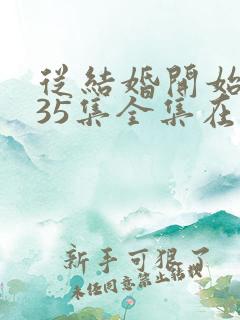 從結婚開始
35集全集在
新手可狠了
未经同意禁止转载